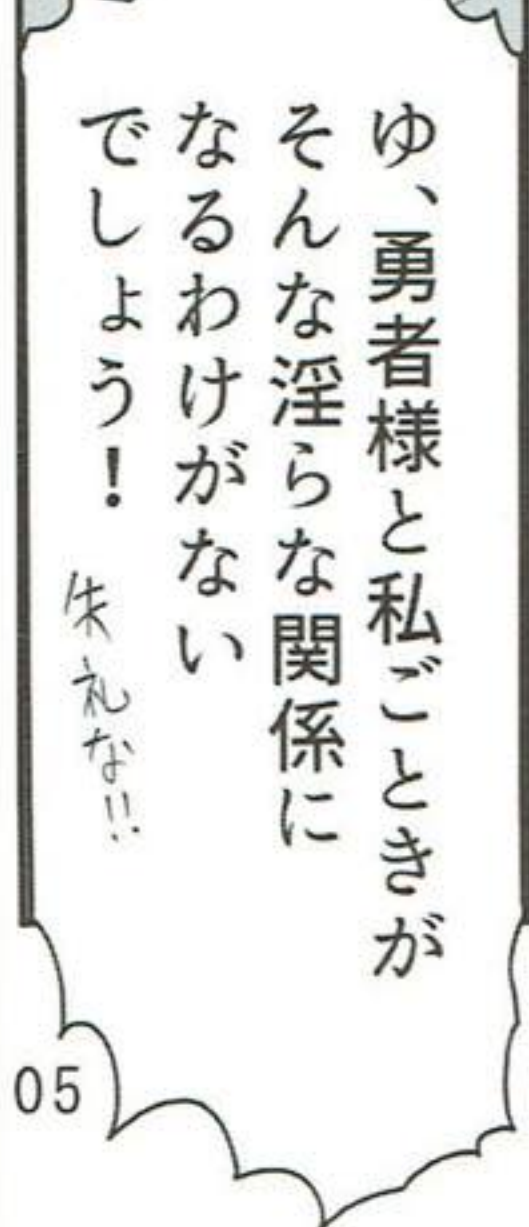 ゆ、勇者様と私ごときが
そんな淫らな関係に
なるわけがない
でしょう！
失礼な!!
05